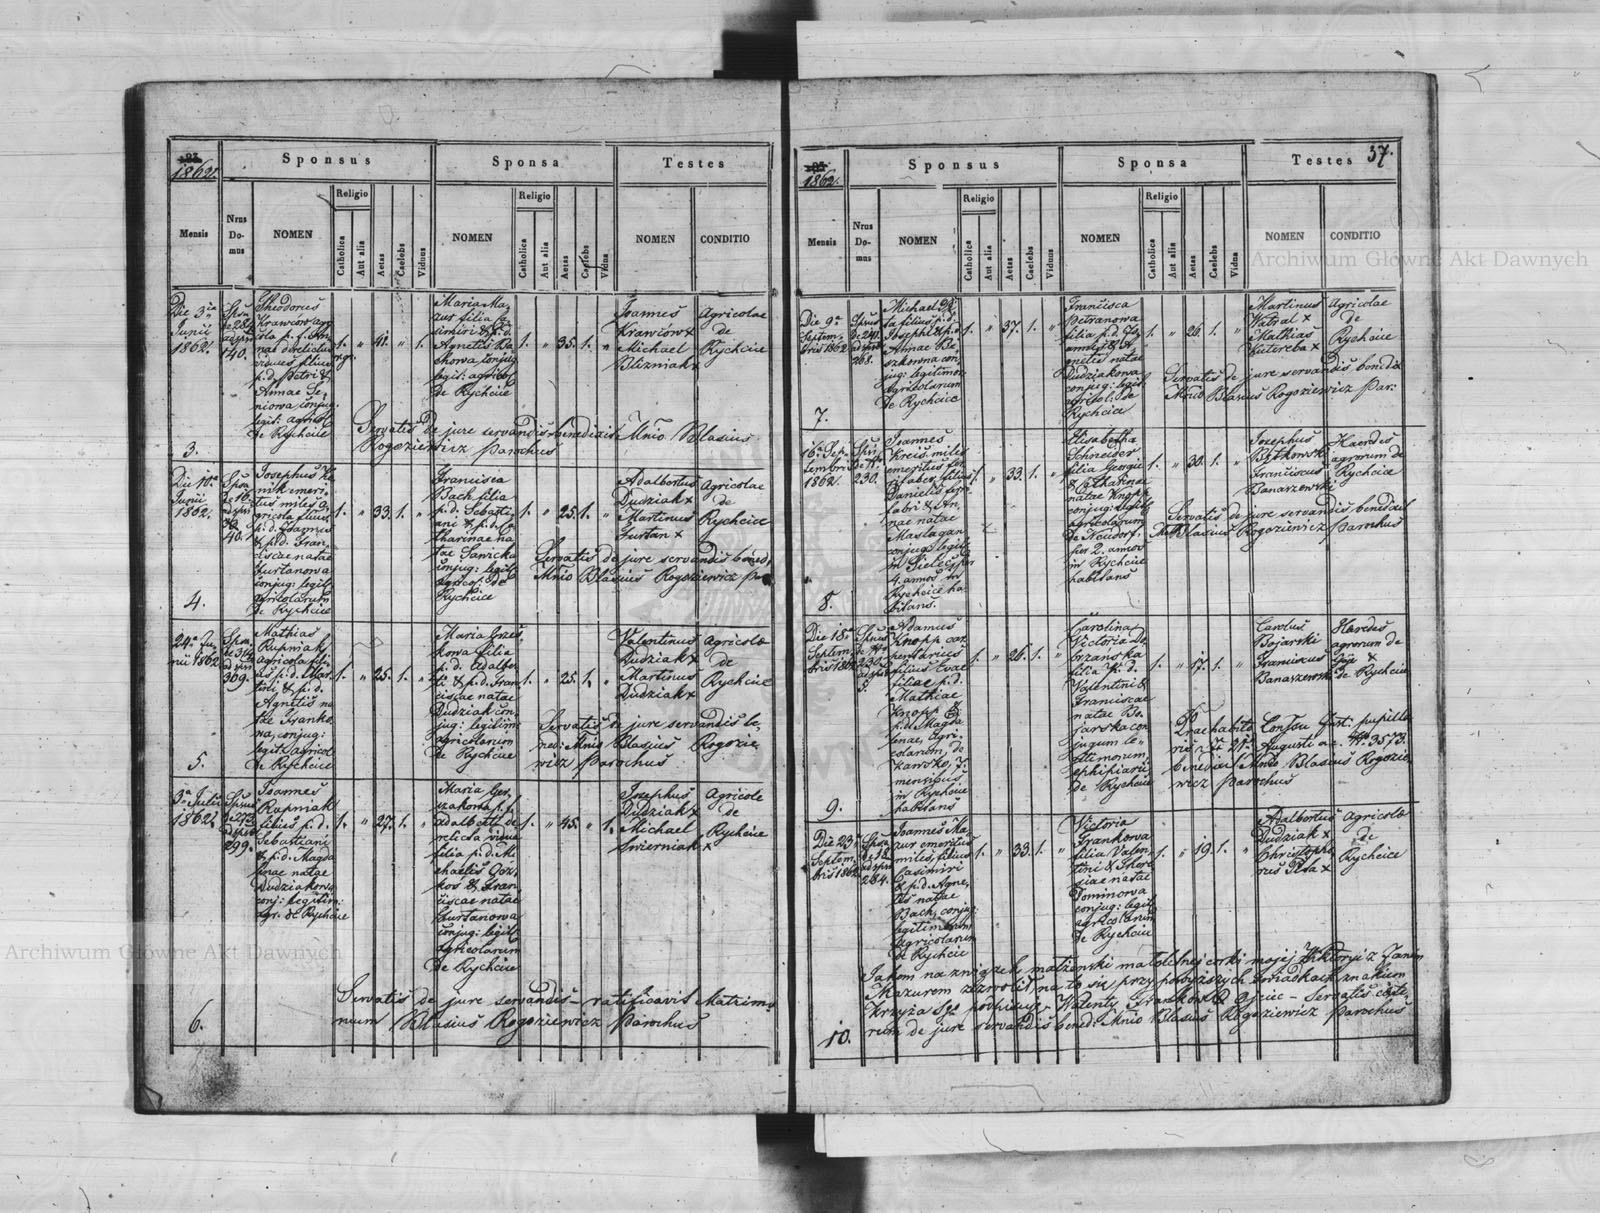 1862.
Sponsus
Sponsa
Testes
Mensis
Nrus Do-mus
NOMEN
Religio
Catholica
Aut alia
Aetas
Caelebs
Viduus
NOMEN
Religio
Catholica
Aut alia
Aetas
Caelebs
Vidua
NOMEN
CONDITIO
Die 3a
Junii
1862.
140.
Theodorus
Krawców agri
cola
Petri &
Annae Se-
niowa conjug.
legit: agricol
de Rychcice
1. " 41. " 1.
Maria Ma-
zur filia Ca-
simiri & p.d.
Agnetis Ba-
chowa conjug
legit: agricol
de Rychcice
1. " 35. 1. "
Joannes
Krawców x
Michael
Blizniak x
Agricolae
de
Rychcice
Servatis de jure servandis benedixit Mnio Blasius
Rogoziewicz Parochus
3.
Die 10a
Junii
1862.
40.
Josephus
emeri-
tus miles a-
gricola filius
p.d.
& p.d. Fran-
ciscae natae
Kurtanowa
conjug: legit:
agricolarum
de Rychcice
1. " 33. 1. "
Francisca
Bach filia
p.d. Sebasti-
ani & p.d. Ca-
tharinae na-
tae Sawicka
conjug: legit:
agricol: de
Rychcice
1. " 25. 1. "
Adalbertus
Dudziak x
Martinus
Kurtan x
Agricolae
de
Rychcice
Servatis de jure servandis bened.
Mnio Blasius Rogoziewicz Par.
4.
24a Ju-
nii 1862
309.
Mathias
Rupniak
agricola fili-
us p.d. Mar-
tini & p.d.
Agnetis na-
tae Franko-
wa, conjug:
legit: agricol
de Rychcice
1. " 25. 1. "
Maria Grześ-
kowa filia
p.d. Adalber-
ti & p.d. Fran-
ciscae natae
Dudziak con-
jug: legitim
agricolarum
de Rychcice
1. " 25. 1. "
Valentinus
Dudziak x
Martinus
Dudziak x
Agricolae
de
Rychcice
Servatis de jure servandis be-
ned: Mnio Blasius Rogozie-
wicz Parochus
5.
3a Julii
1862.
299.
Joannes
Rupniak
filius p.d.
Sebastiani
& p.d. Magda
lenae natae
Dudziakowa
conj: legitim:
agr. de Rychcice
1. " 27. 1. "
Maria
Adalberti de
relicta vidua
filia p.d. Mi-
chaelis Gorz-
kos & Fran-
ciscae natae
Kurtanowa
conjug: legit:
agricolarum
de Rychcice
1. " 45. " 1.
Josephus
Dudziak x
Michael
Swierniak x
Agricolae
de
Rychcice
Servatis de jure servandis ratificavit Matrimo-
nium Blasius Rogoziewicz Parochus
6.
1862.
Sponsus
Sponsa
Testes
37.
Mensis
Nrus Do-mus
NOMEN
Religio
Catholica
Aut alia
Aetas
Caelebs
Viduus
NOMEN
Religio
Catholica
Aut alia
Aetas
Caelebs
Vidua
NOMEN
CONDITIO
Die 9a
Septem
bris 1862
268.
Michael
filius p.d.
Josephi & p.d.
Annae Be-
szkowna con-
jug: legitimor
agricolarum
de Rychcice
1. " 37. 1. "
Francisca
Petranowa
filia p.d. Jo-
annis & A-
gnetis natae
Dudziakowa
conjug: legit:
agricol: de
Rychcice
1. " 26. 1. "
Martinus
Watral x
Mathias
Kutereba x
Agricolae
de
Rychcice
Servatis de jure servandis bendix
Mnio Blasius Rogoziewicz Par:
7.
16a Sep-
tembris
1862.
230.
Joannes
Kreis miles
emeritus fab-
rifaber filius
Danielis ferri-
fabri & An-
nae natae
Mastagan
conjug: legit:
in Sielec, per
4. annos in
Rychcice ha-
bitans.
1. " 33. 1. "
Elisabetha
Schneider
filia Georgii
& Catharinae
natae Knopp
conjug: legit:
agricolarum
de Neudorf,
per 2. annos
in Rychcice
habitans
1. " 30. 1. "
Josephus
Bitkowski
Franciscus
Banaszewski
Haerdes
agrorum de
Rychcice
Servatis de jure servandis benedixit
Mnio Blasius Rogoziewicz Parochus
8.
Die 18a
Septem-
bris 1862
5.
Adamus
Knopp car-
pentarius
filius Evae
filiae p.d.
Mathiae
Knopp &
p.d. Magda-
lenae, agri-
colarum, de
Kawsko, 7.
mensibus
in Rychcice
habitans
1. " 26. 1. "
Carolina
Victoria Do-
brzańska
filia p.d.
Valentini &
Franciscae
natae Bo-
jarska con-
jugum le-
gitimorum
ephipiarii
de Rychcice
1. " 17. 1. "
Carolus
Bojarski
Franciscus
Banaszewski
Haerdes
agrorum de
Gaje &
de Rychcice
Praehabito Consensu Just: pupilla
ris 21a Augusti a.c. No 3573.
benedixit Mnio Blasius Rogozie-
wicz Parochus
9.
Die 23
Septem
bris 1862
284.
Joannes Ma-
zur emeritus
miles, filius
Casimiri
& p.d. Agne-
tis natae
Bach, conjug:
legitimorum
agricolarum
de Rychcice
1. " 33. 1. "
Victoria
Frankowa
filia Valen-
tini &
natae
Dominowa
conjug: legit:
agricolarum
de Rychcice
1. " 19. 1. "
Adalbertus
Dudziak x
Christopho-
rus Ilba x
Agricolae
de
Rychcice
Jakom na związek małżeński małoletniej córki mojej Wiktoryi z Janem
Mazurem zezwolił na to się przy powyższych świadkach znakiem
Krzyża Sgo podpisuję. Walenty Frankow x ojciec - Servatis cete-
rum de jure servandis bened: Mnio Blasius Rogoziewicz Parochus
10.
Archiwum Główne Akt Dawnych
Archiwum Główne Akt Dawnych